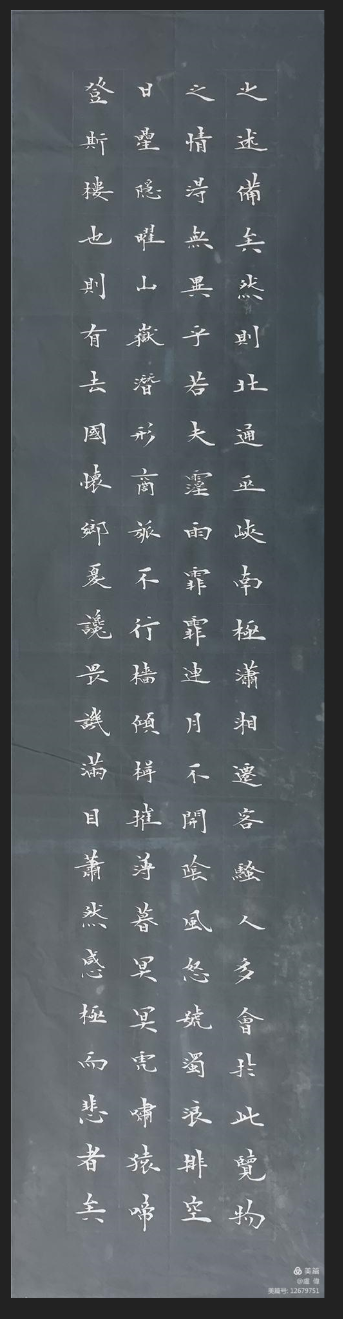 之述備矣然則北通巫峽南極瀟湘遷客騷人多會於此覽物
之情得無異乎若夫霪雨霏霏連月不開陰風怒號濁浪排空
日星隱曜山嶽潛形商旅不行檣傾楫摧薄暮冥冥虎嘯猿啼
登斯樓也則有去國懷鄉憂讒畏譏滿目蕭然感極而悲者矣
美篇
@盧 偉
美篇号: 12679751